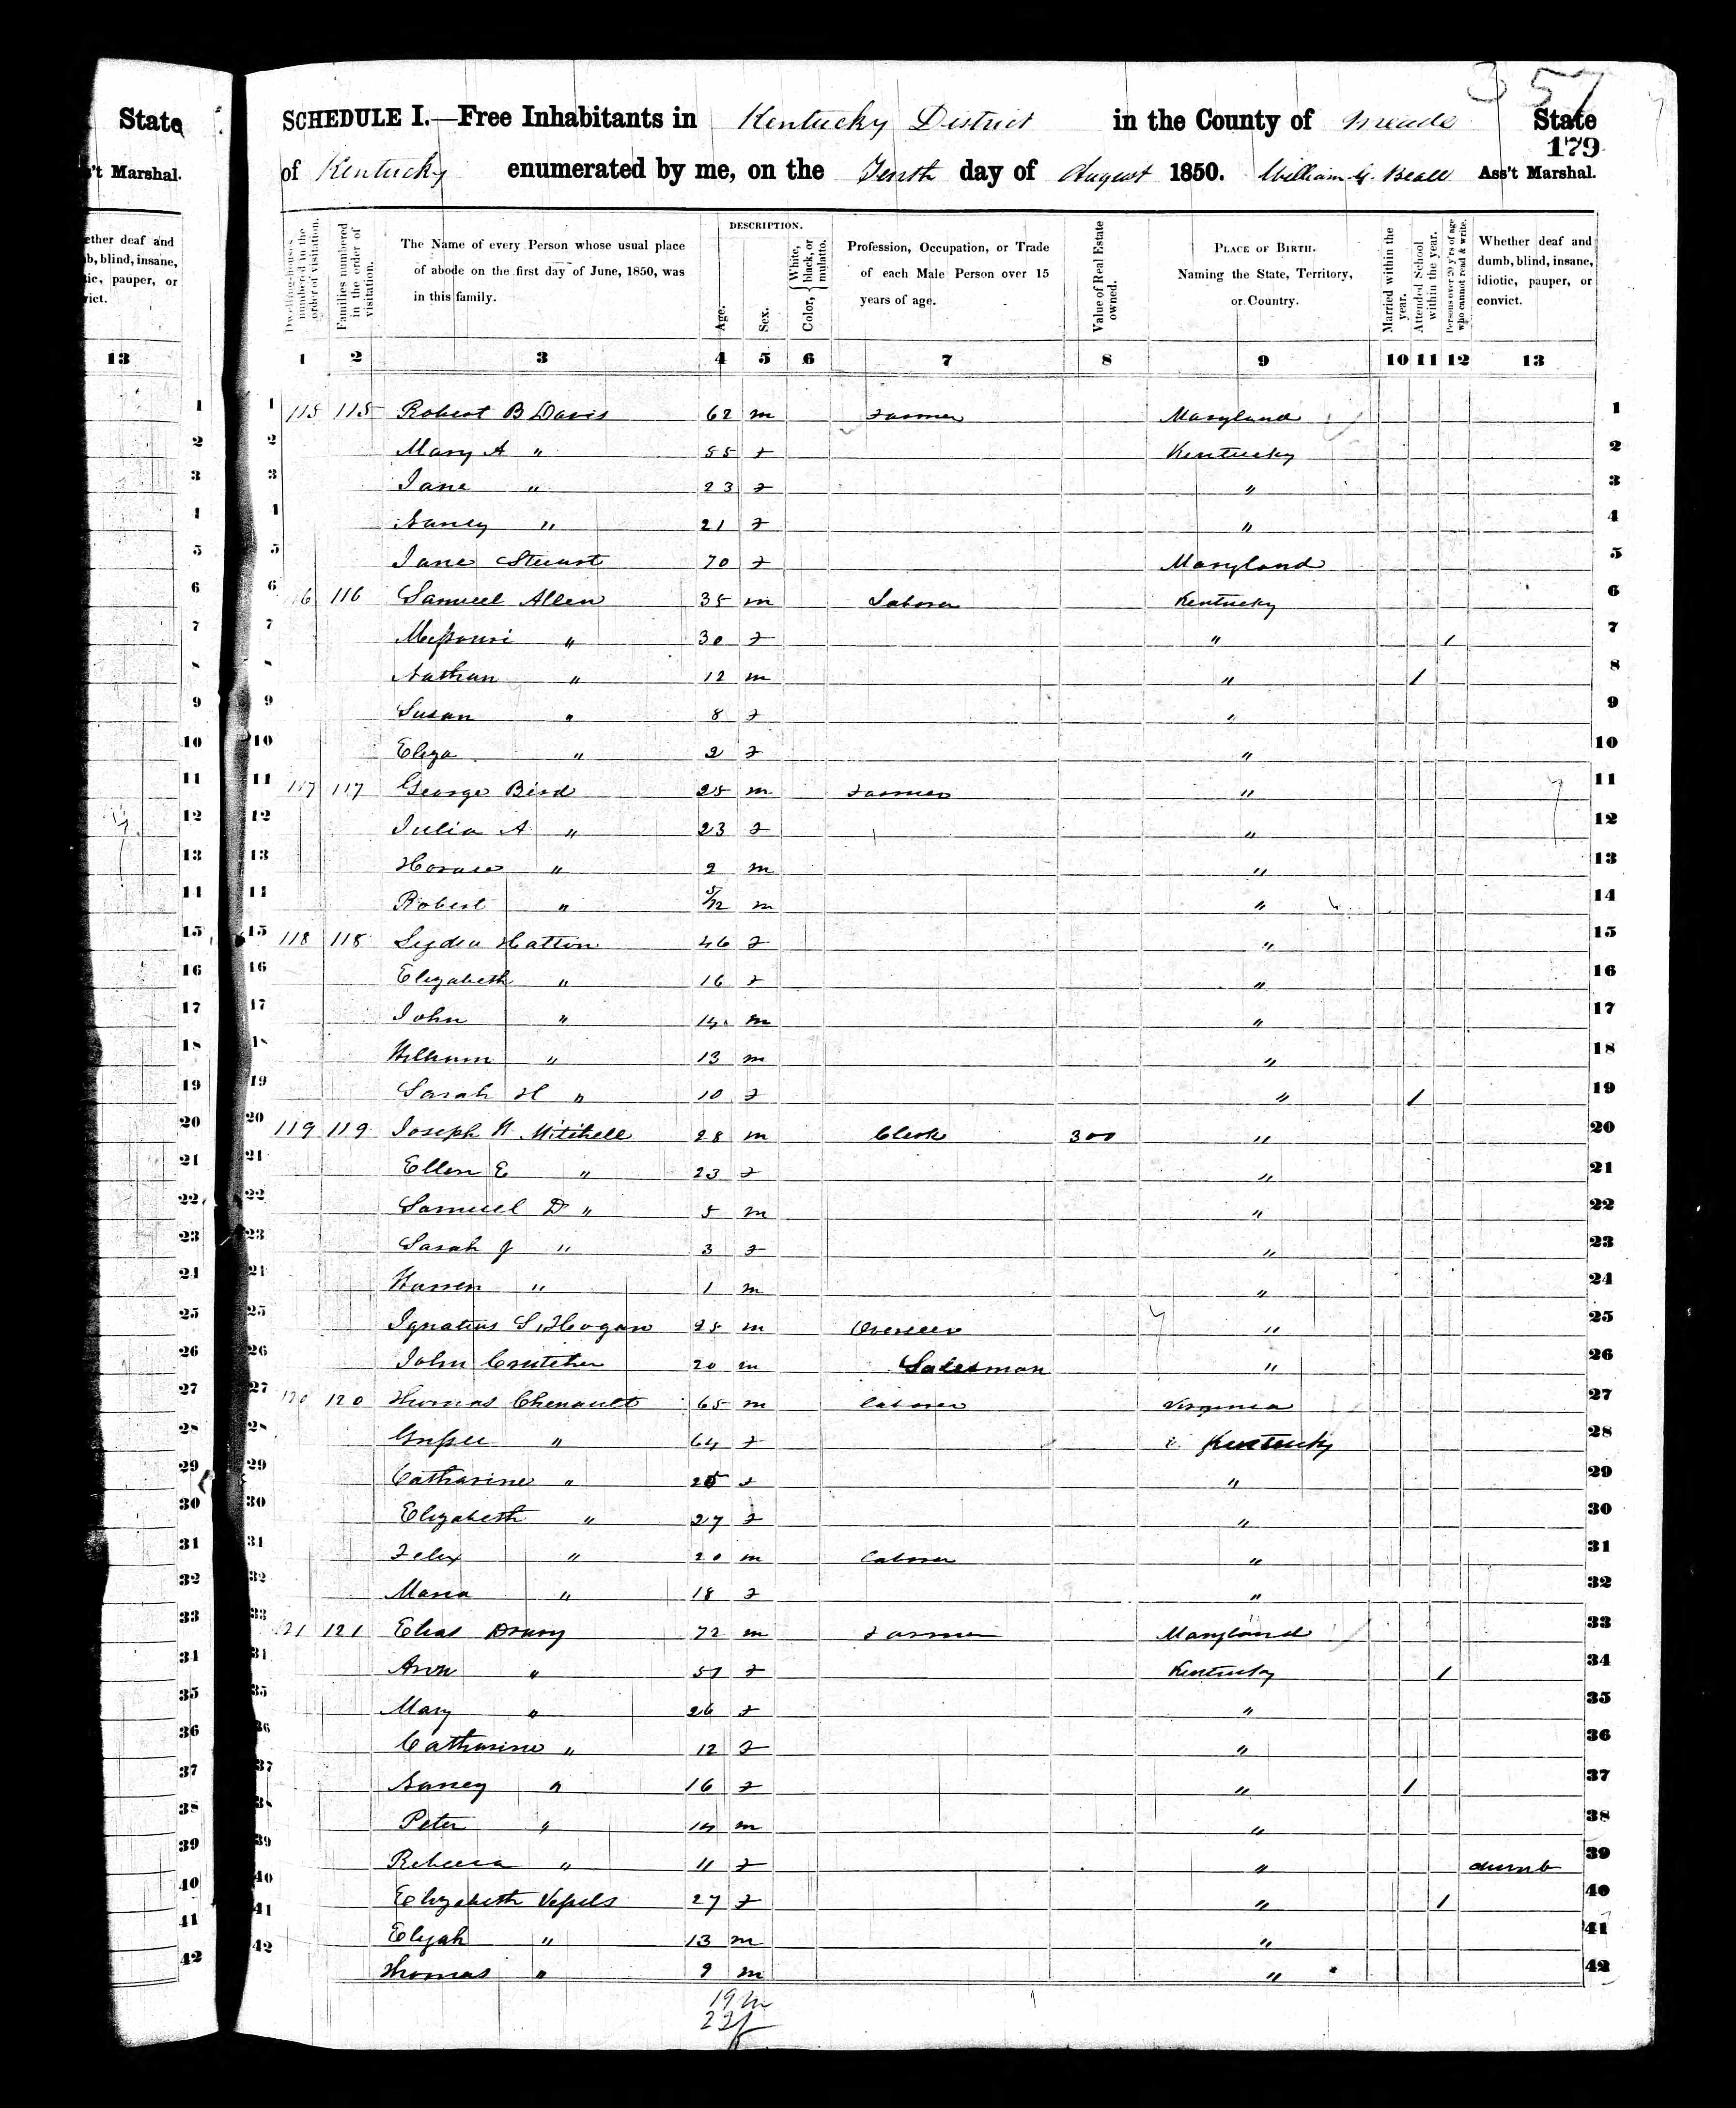 357
State
SCHEDULE I.—Free Inhabitants in Kentucky District in the County of Meade State
179
't Marshal.
of Kentucky enumerated by me, on the Tenth day of August 1850. William G. Beall Ass't Marshal.
ether deaf and
b, blind, insane,
tic, pauper, or
vict.
13
Dwelling-houses numbered in the order of visitation.
Families numbered in the order of visitation.
The Name of every Person whose usual place of abode on the first day of June, 1850, was in this family.
DESCRIPTION.
Age.
Sex.
Color, { White, black, or mulatto.
Profession, Occupation, or Trade of each Male Person over 15 years of age.
Value of Real Estate owned.
PLACE OF BIRTH. Naming the State, Territory, or Country.
Married within the year.
Attended School within the year.
Persons over 20 y'rs of age who cannot read & write.
Whether deaf and dumb, blind, insane, idiotic, pauper, or convict.
1 2 3 4 5 6 7 8 9 10 11 12 13
1 115 115 Robert B Davis 62 m Farmer Maryland 1
2 Mary A " 55 f Kentucky 2
3 Jane " 23 f " 3
4 Nancy " 21 f " 4
5 Jane Stuart 70 f Maryland 5
6 116 116 Samuel Allen 35 m Laborer Kentucky 6
7 Missouri " 30 f " 1 7
8 Nathan " 12 m " 1 8
9 Susan " 8 f " 9
10 Eliza " 2 f " 10
11 117 117 George Bird 25 m Farmer " 11
12 Julia A " 23 f " 12
13 Horace " 2 m " 13
14 Robert " 5/12 m " 14
15 118 118 Lydia Hatton 46 f " 15
16 Elizabeth " 16 f " 16
17 John " 14 m " 17
18 William " 13 m " 18
19 Sarah H " 10 f " 1 19
20 119 119 Joseph W Mitchell 28 m Clerk 300 " 20
21 Ellen E " 23 f " 21
22 Samuel D " 5 m " 22
23 Sarah J " 3 f " 23
24 Warren " 1 m " 24
25 Ignatius S. Hogan 25 m Overseer " 25
26 John Crutcher 20 m Salesman " 26
27 120 120 Thomas Chenault 65 m Laborer Virginia 27
28 " 64 f Kentucky 28
29 Catharine " 25 f " 29
30 Elizabeth " 27 f " 30
31 Felix " 20 m Laborer " 31
32 Maria " 18 f " 32
33 121 121 Elias Drury 72 m Farmer Maryland 33
34 Ann " 51 f Kentucky 1 34
35 Mary " 26 f " 35
36 Catharine " 12 f " 36
37 Nancy " 16 f " 1 37
38 Peter " 14 m " 38
39 Rebecca " 11 f " dumb 39
40 Elizabeth Vessels 27 f " 1 40
41 Elijah " 13 m " 41
42 Thomas " 9 m " 42
19 m
23 f